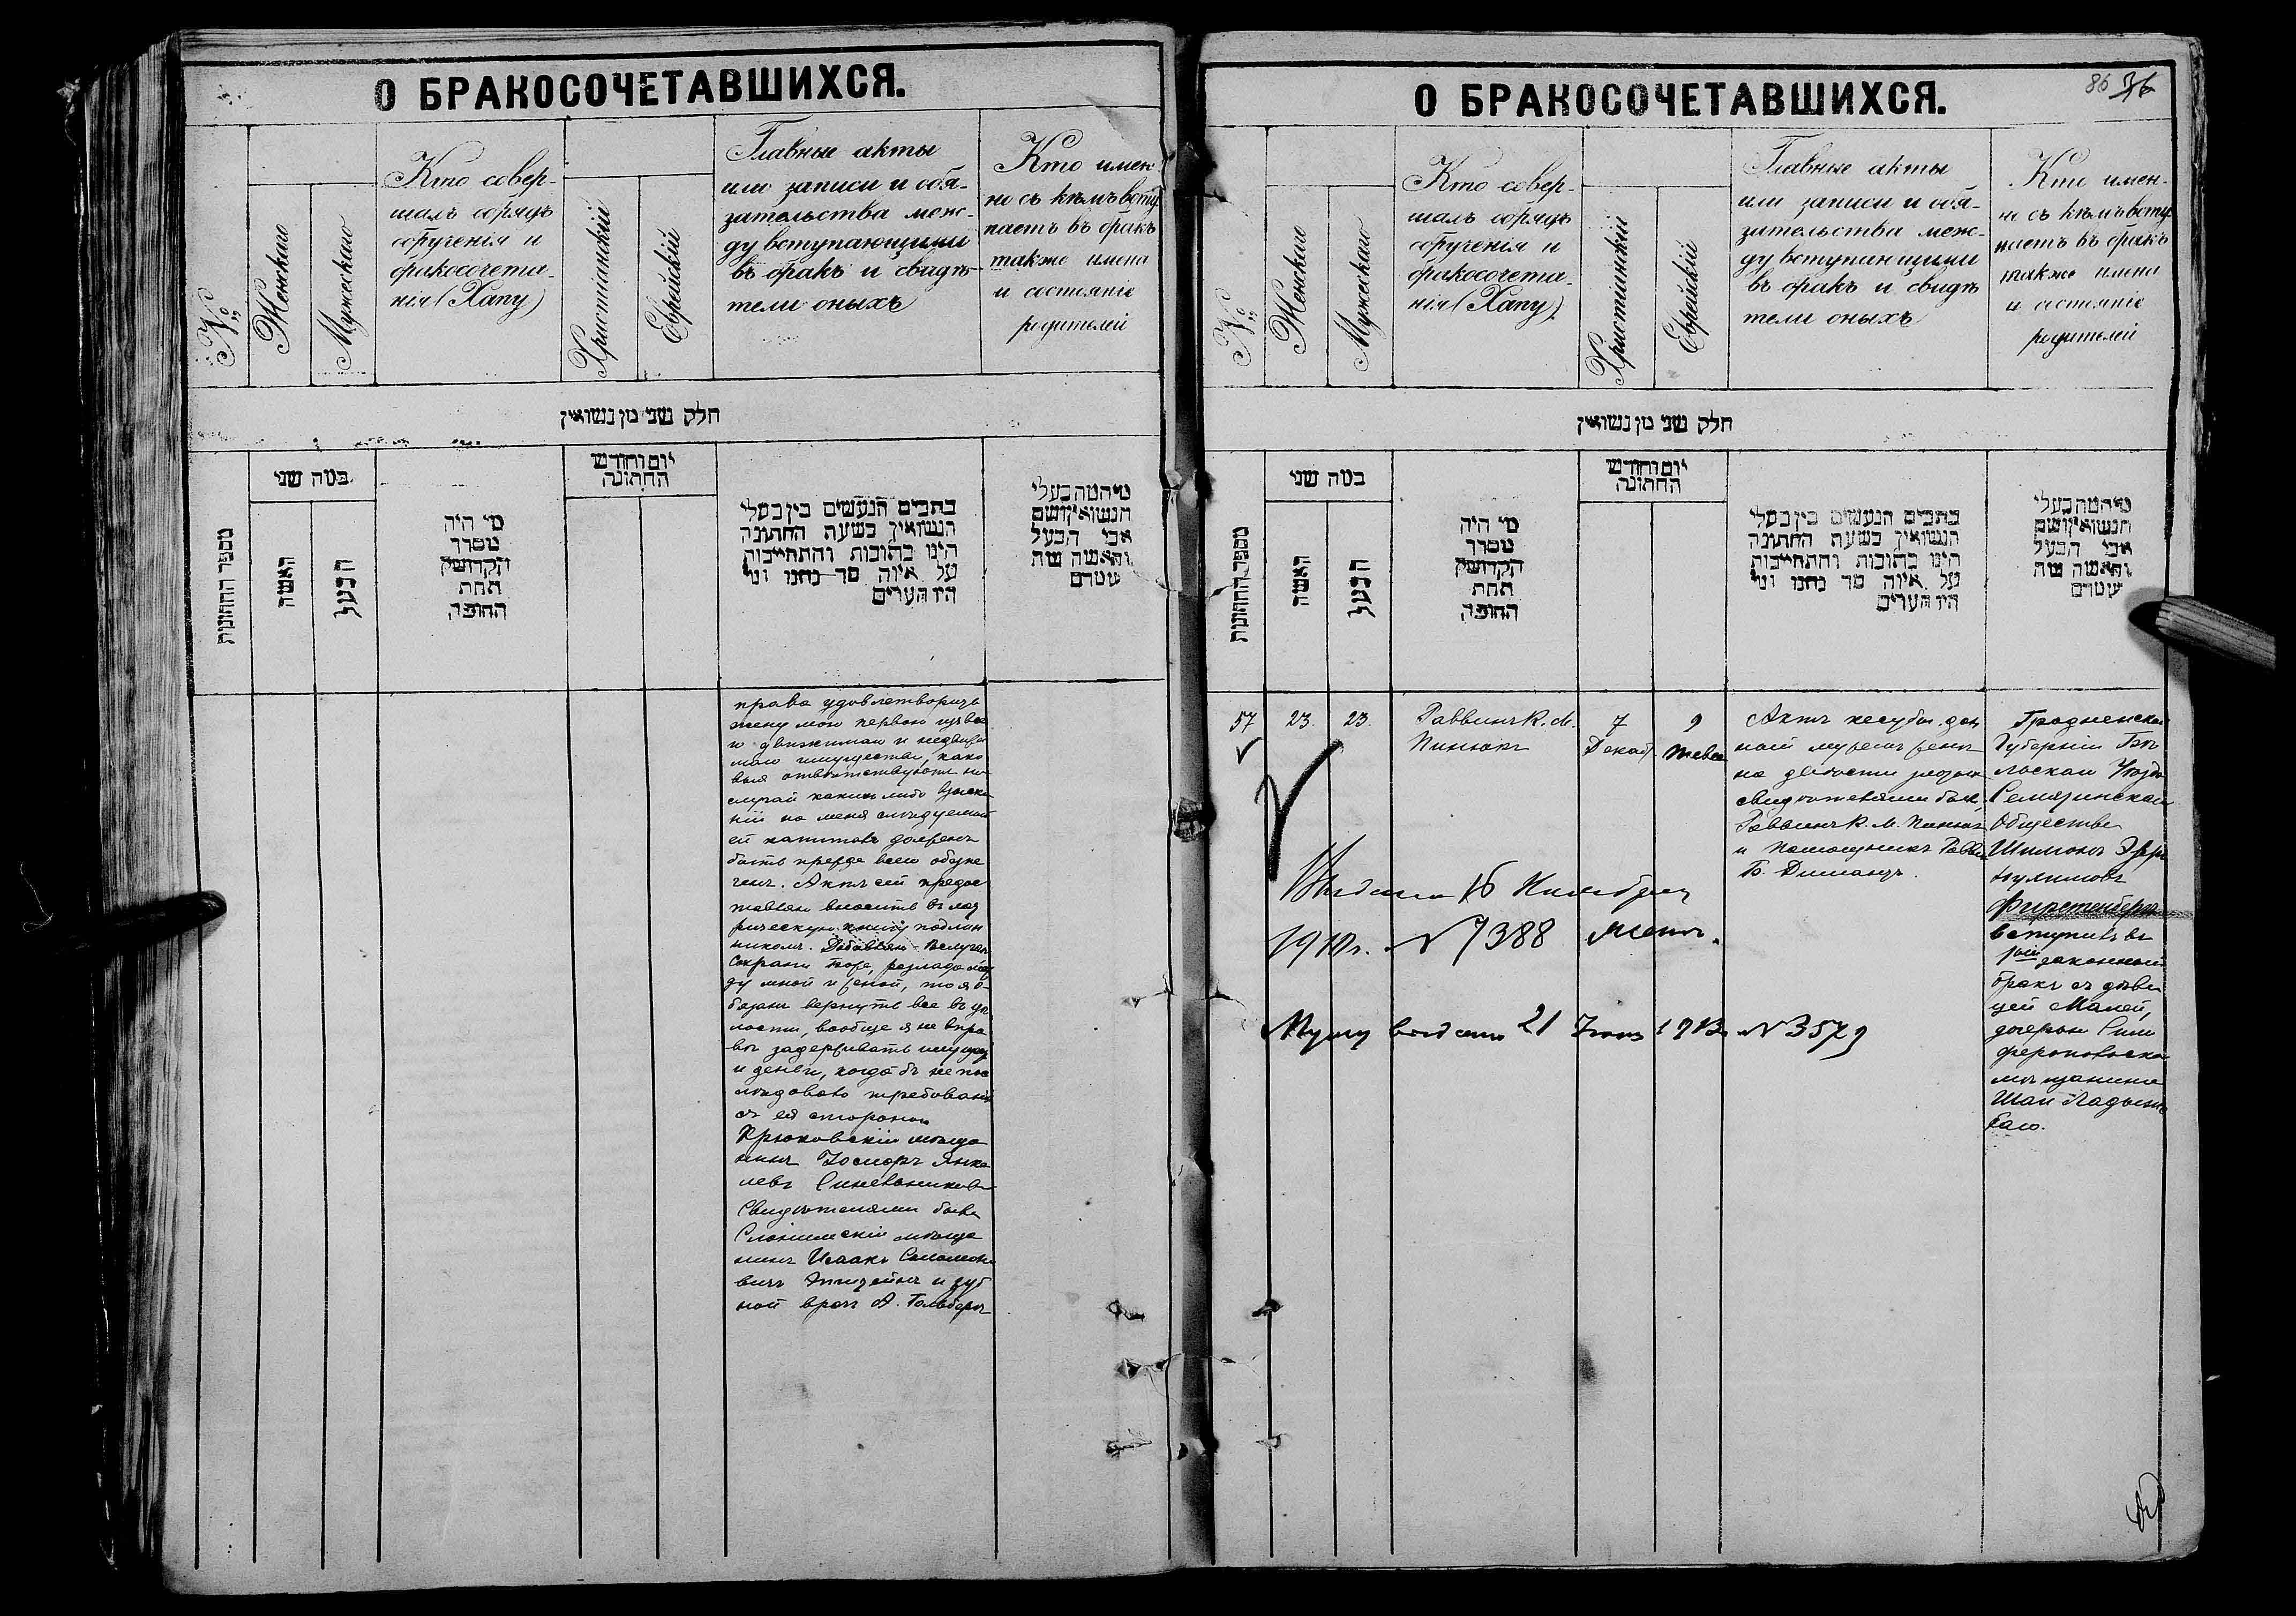 О БРАКОСОЧЕТАВШИХСЯ.
№
Женскаго
Мужескаго
Кто совер-
шалъ обрядъ
обрученія и
бракосочета-
нія (Хапу)
Христіанскій
Еврейскій
Главные акты
или записи и обя-
зательства меж-
ду вступающими
въ бракъ и свидѣ-
тели оныхъ
Кто имен
но съ кѣмъ всту
паетъ въ бракъ
также имена
и состояніе
родителей
חלק שני מן נשואין
מספר החתונות
כמה שני
האשה
הבעל
מי היה
מסדר
הקדושין
תחת
החופה
יום וחודש
החתונה
כתבים הנעשים בין בעלי
הנשואין בשעת החתונה
היינו כתובות והתחייבות
על איזה סך נתנו ומי
היו העדים
מי המה בעלי
הנשואין ושם
אבי הבעל
והאשה
права удовлетворить
жену мою первою изъ все
го движимаго и недвижи
маго имущества, како
выя отвѣтствуютъ на
случай какихъ либо взыска
ній на меня слѣдуемый
ей капиталъ долженъ
быть прежде всего обезпе
ченъ. Актъ сей предос
тавляю вносить въ мет
рическую книгу подлин
никомъ.
Сохрани Боже, разлада меж
ду мной и женой, то я о-
бязанъ вернуть все въ цѣ
лости, вообще я не впра
вѣ задерживать имущ
и деньги, когда бъ не пос
лѣдовало требованій
съ ея стороны
Крюковскій мѣща
нинъ Янке
левъ
Свидѣтелями были
Слонимскій мѣща
нинъ Исаакъ Соломоно
вичъ Эпштейнъ и зуб
ной врачъ А. Гольдбергъ
О БРАКОСОЧЕТАВШИХСЯ.
86
№
Женскаго
Мужескаго
Кто совер-
шалъ обрядъ
обрученія и
бракосочета-
нія (Хапу)
Христіанскій
Еврейскій
Главные акты
или записи и обя-
зательства меж-
ду вступающими
въ бракъ и свидѣ
тели оныхъ
Кто имен-
но съ кѣмъ всту
паетъ въ бракъ
также имена
и состояніе
родителей
חלק שני מן נשואין
מספר החתונות
כמה שני
האשה
הבעל
מי היה
מסדר
הקדושין
תחת
החופה
יום וחודש
החתונה
כתבים הנעשים בין בעלי
הנשואין בשעת החתונה
היינו כתובות והתחייבות
על איזה סך נתנו ומי
היו העדים
מי המה בעלי
הנשואין ושם
אבי הבעל
והאשה
57
23.
23.
Раввинъ К. М.
Пинюкъ
7
Декаб
9
Тевес
Актъ кесубы дан
ный мужемъ женѣ
на двѣсти
свидѣтелями были
Раввинъ К. М. Пинюкъ
и помощникъ Равви
Б. Диманъ.
Гродненской
Губерніи Бѣль
скаго Уѣзда
Общества
Шимонъ
Фирстенбергъ
вступилъ въ
законный
бракъ съ дѣви
цей Малей,
дочерью Сим
феропольска
мѣщанина
Шаи
Выдана 16 Ноября
1910 г. № 7388
Мужу выдано 21 1913 № 3579